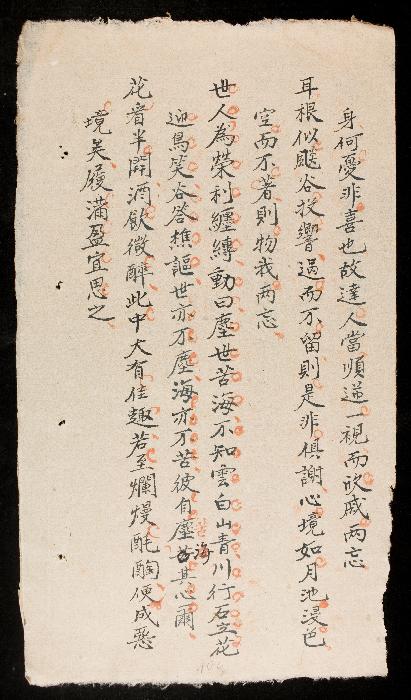 身何憂非喜也故達人當順逆一視而欣戚兩忘
耳根似颷谷投響過而不留則是非俱謝心境如月池浸色
空而不著則物我兩忘
世人為榮利纏縛動曰塵世苦海不知雲白山青川行石立花
迎鳥笑谷答樵謳世亦不塵海亦不苦彼自塵苦其心爾
海
花看半開酒飲微醉此中大有佳趣若至爛熳酕醄便成惡
境矣履滿盈宜思之